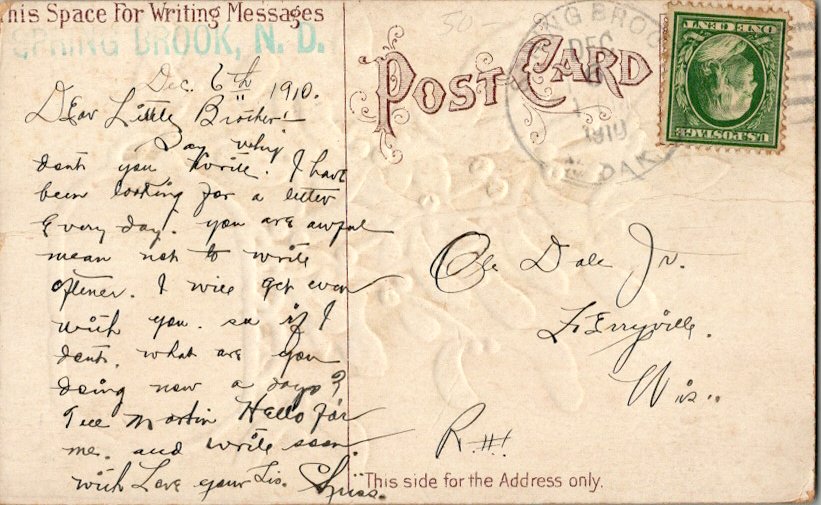 his Space For Writing Messages
SPRING BROOK, N. D.
Dec. 6th 1910.
Dear Little Brother!
Say why
dont you write. I have
been looking for a letter
Every day. you are awful
mean not to write
oftener. I will get even
with you. see if I
dont. what are you
doing now a days?
Tell Martin Hello for
me. and write soon
with Love your Sis.
POST CARD
SPRING BROOK
DEC
1910
DAK
U.S. POSTAGE
ONE CENT
Ole Dale Jr.
Ferryville.
Wis..
This side for the Address only.